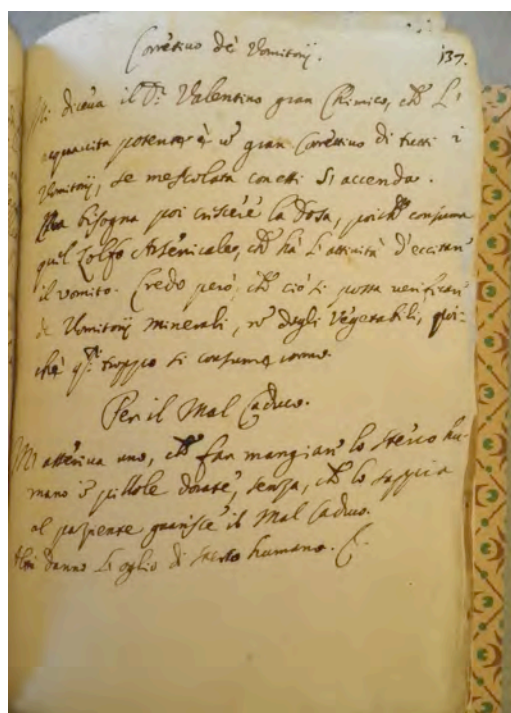 Correttivo de' Vomitorij.
137.
Mi diceua il Dr. Valentino gran Chimico, che l'
acquauita potente è un gran Correttivo di tutti i
Vomitorij, se mescolata con essi si accenda.
Ma bisogna poi criscere la dosa, poiche consuma
quel Zolfo Arsenicale, che hà l'attiuità d'eccitare
il vomito. Credo però, che ciò si possa uerificare
de Vomitorij minerali, non degli Vegetabili, poi-
che troppo si consuma
Per il Mal Caduco.
Mi asseriua uno, che far mangiare lo sterco hu-
mano in pillole dorate, senza, che lo sappia
al paziente guarisce il Mal Caduco.
Altri danno l'oglio di sterco humano.